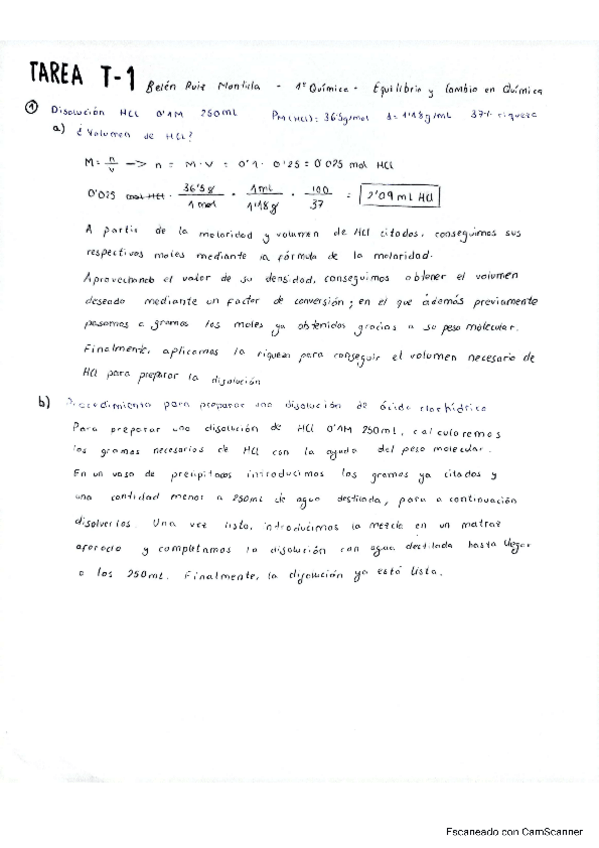 TAREA T-1 Belén Ruiz Montula - 1º Química - Equilibrio y Cambio en Química
① Disolución HCl 0'1M 250mL PM(HCl): 36'5g/mol d=1'18g/mL 37% riqueza
a) ¿Volumen de HCl?
M = n/v —> n = M·V = 0'1 · 0'25 = 0'025 mol HCl
0'025 mol HCl · 36'5g/1 mol · 1mL/1'18g · 100/37 = 2'09 mL HCl
A partir de la molaridad y volumen de HCl citados, conseguimos sus
respectivos moles mediante la fórmula de la molaridad.
Aprovechando el valor de su densidad, conseguimos obtener el volumen
deseado mediante un factor de conversión; en el que además previamente
pasamos a gramos los moles ya obtenidos gracias a su peso molecular.
Finalmente, aplicamos la riqueza para conseguir el volumen necesario de
HCl para preparar la disolución
b) Procedimiento para preparar una disolución de ácido clorhídrico
Para preparar una disolución de HCl 0'1M 250mL, calcularemos
los gramos necesarios de HCl con la ayuda del peso molecular.
En un vaso de precipitados introducimos los gramos ya citados y
una cantidad menor a 250mL de agua destilada, para a continuación
disolverlos. Una vez listo, introducimos la mezcla en un matraz
aforado y completamos la disolución con agua destilada hasta llegar
a los 250mL. Finalmente, la disolución ya está lista.
Escaneado con CamScanner